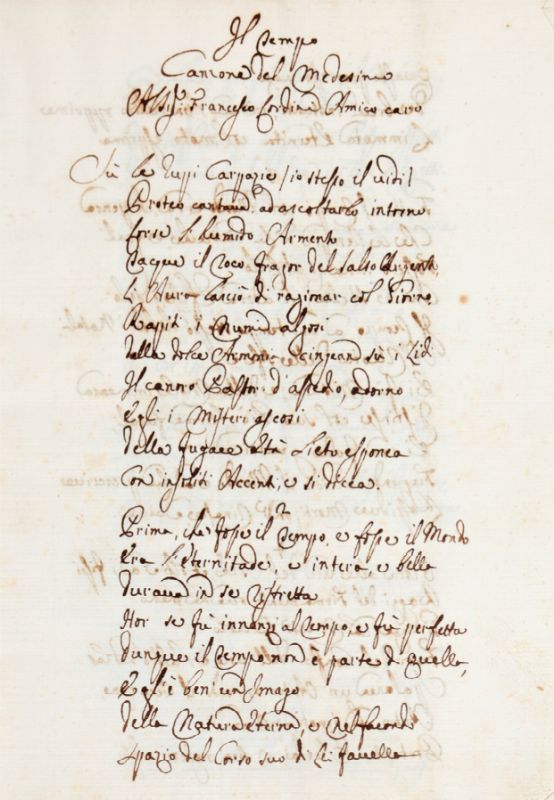 Il Tempo
Canzone del Medesimo
Al Sigr. Francesco Cordini Amico caro
Sù le Rupi Carpazie /io stesso il vidi/
Proteo cantava, ad ascoltarlo intorno
Corse l'humido Armento
Tacque il roco fragor del salso Argento,
L'Aura lasciò di ragionar col Giorno
Rapiti i Numi algosi
della dolce Armonia cingean sù i Lidi
Il canoro Pastor d'assedio adorno
Egli i Misteri ascosi
della fugace età lieto esponea
Con insoliti Accenti, e sì dicea.
2
Prima, che fosse il Tempo, e fosse il Mondo
Era l'Eternitade, e intera, e bella
durava in se ristretta
Hor se fù innanzi al Tempo, e fù perfetta
dunque il Tempo non è parte di quella,
Egli è ben un Imago
della Natura eterna, e nel facondo
spazio del Corso suo di lei favella